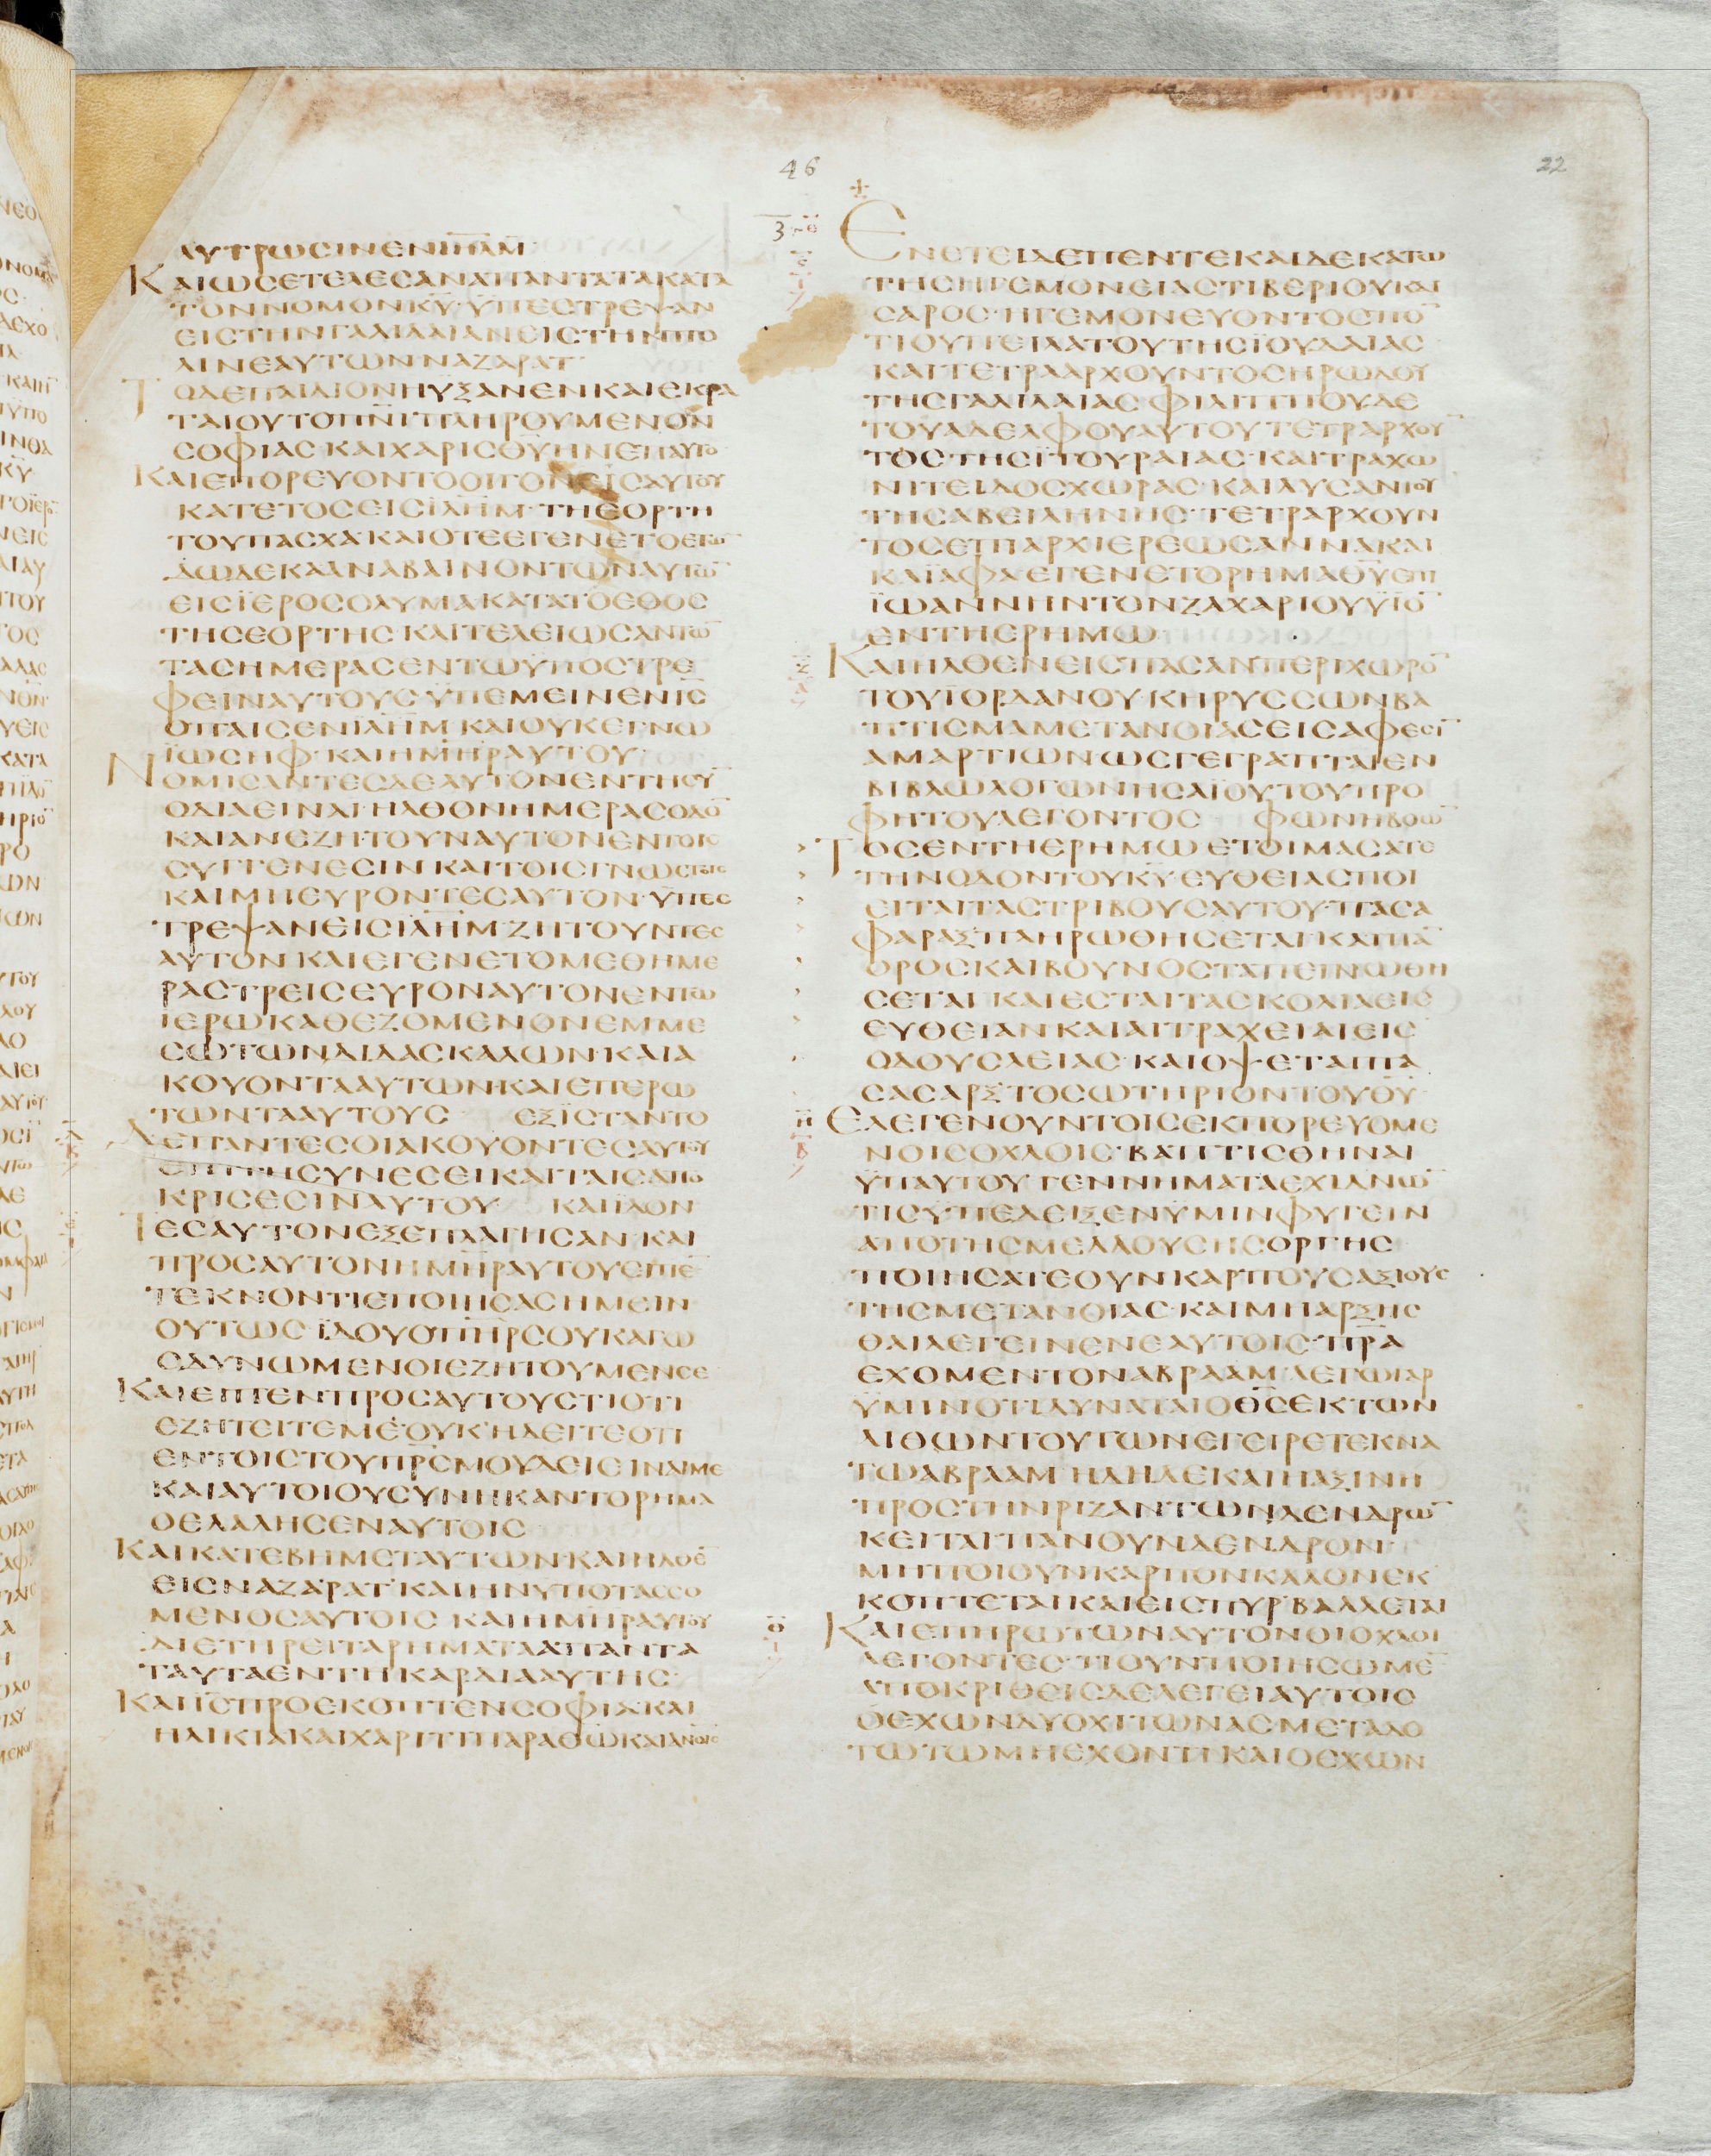 46
22
ΛΥΤΡΩϹΙΝΕΝΙΗΛΜ
ΚΑΙΩϹΕΤΕΛΕϹΑΝΑΠΑΝΤΑΤΑΚΑΤΑ
ΤΟΝΝΟΜΟΝΚΥ·ΫΠΕϹΤΡΕΨΑΝ
ΕΙϹΤΗΝΓΑΛΙΛΑΙΑΝΕΙϹΤΗΝΠΟ
ΛΙΝΕΑΥΤΩΝ·ΝΑΖΑΡΑΤ·
ΤΟΔΕΠΑΙΔΙΟΝΗΥΞΑΝΕΝΚΑΙΕΚΡΑ
ΤΑΙΟΥΤΟΠΝΙΠΛΗΡΟΥΜΕΝΟΝ
ϹΟΦΙΑϹ·ΚΑΙΧΑΡΙϹΘΥΗΝΕΠΑΥΤΟ
ΚΑΙΕΠΟΡΕΥΟΝΤΟΟΙΓΟΝΕΙϹΑΥΤΟΥ
ΚΑΤΕΤΟϹΕΙϹΙΛΗΜ·ΤΗΕΟΡΤΗ
ΤΟΥΠΑϹΧΑ·ΚΑΙΟΤΕΕΓΕΝΕΤΟΕΤΩ¯
ΔΩΔΕΚΑΑΝΑΒΑΙΝΟΝΤΩΝΑΥΤΩ¯
ΕΙϹΪΕΡΟϹΟΛΥΜΑΚΑΤΑΤΟΕΘΟϹ
ΤΗϹΕΟΡΤΗϹ·ΚΑΙΤΕΛΕΙΩϹΑΝΤΩ¯
ΤΑϹΗΜΕΡΑϹΕΝΤΩΫΠΟϹΤΡΕ
ΦΕΙΝΑΥΤΟΥϹ·ΫΠΕΜΕΙΝΕΝΙϹ
ΟΠΑΙϹΕΝΙΛΗΜ·ΚΑΙΟΥΚΕΓΝΩ
ΪΩϹΗΦ·ΚΑΙΗΜΗΡΑΥΤΟΥ·
ΝΟΜΙϹΑΝΤΕϹΔΕΑΥΤΟΝΕΝΤΗϹΥ¯
ΟΔΙΑΕΙΝΑΙ·ΗΛΘΟΝΗΜΕΡΑϹΟΔΟ¯
ΚΑΙΑΝΕΖΗΤΟΥΝΑΥΤΟΝΕΝΤΟΙϹ
ϹΥΓΓΕΝΕϹΙΝΚΑΙΤΟΙϹΓΝΩϹΤΟΙϹ
ΚΑΙΜΗΕΥΡΟΝΤΕϹΑΥΤΟΝ·ΫΠΕϹ
ΤΡΕΨΑΝΕΙϹΙΛΗΜ·ΖΗΤΟΥΝΤΕϹ
ΑΥΤΟΝ·ΚΑΙΕΓΕΝΕΤΟΜΕΘΗΜΕ
ΡΑϹΤΡΕΙϹΕΥΡΟΝΑΥΤΟΝΕΝΤΩ
ΙΕΡΩ·ΚΑΘΕΖΟΜΕΝΟΝΕΜΜΕ
ϹΩΤΩΝΔΙΔΑϹΚΑΛΩΝ·ΚΑΙΑ
ΚΟΥΟΝΤΑΑΥΤΩΝ·ΚΑΙΕΠΕΡΩ
ΤΩΝΤΑΑΥΤΟΥϹ ΕΞΪϹΤΑΝΤΟ
ΔΕΠΑΝΤΕϹΟΙΑΚΟΥΟΝΤΕϹΑΥΤΟΥ
ΕΠΙΤΗϹΥΝΕϹΕΙΚΑΙΤΑΙϹΑΠΟ
ΚΡΙϹΕϹΙΝΑΥΤΟΥ· ΚΑΙΪΔΟΝ
ΤΕϹΑΥΤΟΝΕΞΕΠΛΑΓΗϹΑΝ·ΚΑΙ
ΠΡΟϹΑΥΤΟΝΗΜΗΡΑΥΤΟΥΕΙΠΕ¯
ΤΕΚΝΟΝΤΙΕΠΟΙΗϹΑϹΗΜΕΙΝ
ΟΥΤΩϹ·ΪΔΟΥΟΠΗΡϹΟΥΚΑΓΩ
ΟΔΥΝΩΜΕΝΟΙΕΖΗΤΟΥΜΕΝϹΕ
ΚΑΙΕΙΠΕΝΠΡΟϹΑΥΤΟΥϹΤΙΟΤΙ
ΕΖΗΤΕΙΤΕΜΕ·ΟΥΚΗΔΕΙΤΕΟΤΙ
ΕΝΤΟΙϹΤΟΥΠΡϹΜΟΥΔΕΙΕΙΝΑΙΜΕ
ΚΑΙΑΥΤΟΙΟΥϹΥΝΗΚΑΝΤΟΡΗΜΑ
ΟΕΛΑΛΗϹΕΝΑΥΤΟΙϹ
ΚΑΙΚΑΤΕΒΗΜΕΤΑΥΤΩΝ·ΚΑΙΗΛΘΕ¯
ΕΙϹΝΑΖΑΡΑΤ·ΚΑΙΗΝΥΠΟΤΑϹϹΟ
ΜΕΝΟϹΑΥΤΟΙϹ·ΚΑΙΗΜΗΡΑΥΤΟΥ
ΔΙΕΤΗΡΕΙΤΑΡΗΜΑΤΑΑΠΑΝΤΑ
ΤΑΥΤΑΕΝΤΗΚΑΡΔΙΑΑΥΤΗϹ·
ΚΑΙΙϹΠΡΟΕΚΟΠΤΕΝϹΟΦΙΑ·ΚΑΙ
ΗΛΙΚΙΑΚΑΙΧΑΡΙΤΙΠΑΡΑΘΩΚΑΙΑΝΟΙϹ
3
ΕΝΕΤΕΙΔΕΠΕΝΤΕΚΑΙΔΕΚΑΤΩ
ΤΗϹΗΓΕΜΟΝΕΙΑϹΤΙΒΕΡΙΟΥΚΑΙ
ϹΑΡΟϹ·ΗΓΕΜΟΝΕΥΟΝΤΟϹΠΟ¯
ΤΙΟΥΠΕΙΛΑΤΟΥΤΗϹΪΟΥΔΑΙΑϹ
ΚΑΙΤΕΤΡΑΑΡΧΟΥΝΤΟϹΗΡΩΔΟΥ
ΤΗϹΓΑΛΙΛΑΙΑϹ·ΦΙΛΙΠΠΟΥΔΕ
ΤΟΥΑΔΕΛΦΟΥΑΥΤΟΥΤΕΤΡΑΡΧΟΥ¯
ΤΟϹ·ΤΗϹΪΤΟΥΡΑΙΑϹ·ΚΑΙΤΡΑΧΩ
ΝΙΤΕΙΔΟϹΧΩΡΑϹ·ΚΑΙΛΥϹΑΝΙΟΥ
ΤΗϹΑΒΕΙΛΗΝΗϹ·ΤΕΤΡΑΡΧΟΥΝ
ΤΟϹΕΠΙΑΡΧΙΕΡΕΩϹΑΝΝΑΚΑΙ
ΚΑΪΑΦΑ·ΕΓΕΝΕΤΟΡΗΜΑΘΥΕΠΙ
ΪΩΑΝΝΗΝΤΟΝΖΑΧΑΡΙΟΥΫΪΟ¯
ΕΝΤΗΕΡΗΜΩ·
ΚΑΙΗΛΘΕΝΕΙϹΠΑϹΑΝΠΕΡΙΧΩΡΟ¯
ΤΟΥΪΟΡΔΑΝΟΥ·ΚΗΡΥϹϹΩΝΒΑ
ΠΤΙϹΜΑΜΕΤΑΝΟΙΑϹΕΙϹΑΦΕϹΙ¯
ΑΜΑΡΤΙΩΝ·ΩϹΓΕΓΡΑΠΤΑΙΕΝ
ΒΙΒΛΩΛΟΓΩΝΗϹΑΪΟΥΤΟΥΠΡΟ
ΦΗΤΟΥΛΕΓΟΝΤΟϹ ΦΩΝΗΒΟΩ¯
ΤΟϹΕΝΤΗΕΡΗΜΩ·ΕΤΟΙΜΑϹΑΤΕ
ΤΗΝΟΔΟΝΤΟΥΚΥ·ΕΥΘΕΙΑϹΠΟΙ
ΕΙΤΑΙΤΑϹΤΡΙΒΟΥϹΑΥΤΟΥ·ΠΑϹΑ
ΦΑΡΑΞΠΛΗΡΩΘΗϹΕΤΑΙ·ΚΑΙΠΑ¯
ΟΡΟϹΚΑΙΒΟΥΝΟϹΤΑΠΕΙΝΩΘΗ
ϹΕΤΑΙ·ΚΑΙΕϹΤΑΙΤΑϹΚΟΛΙΑΕΙϹ
ΕΥΘΕΙΑΝ·ΚΑΙΑΙΤΡΑΧΕΙΑΙΕΙϹ
ΟΔΟΥϹΛΕΙΑϹ·ΚΑΙΟΨΕΤΑΙΠΑ
ϹΑϹΑΡΞΤΟϹΩΤΗΡΙΟΝΤΟΥΘΥ·
ΕΛΕΓΕΝΟΥΝΤΟΙϹΕΚΠΟΡΕΥΟΜΕ
ΝΟΙϹΟΧΛΟΙϹ·ΒΑΠΤΙϹΘΗΝΑΙ
ΫΠΑΥΤΟΥ·ΓΕΝΝΗΜΑΤΑΕΧΙΔΝΩ¯
ΤΙϹΫΠΕΔΕΙΞΕΝΫΜΙΝΦΥΓΕΙΝ
ΑΠΟΤΗϹΜΕΛΛΟΥϹΗϹΟΡΓΗϹ
ΠΟΙΗϹΑΤΕΟΥΝΚΑΡΠΟΥϹΑΞΙΟΥϹ
ΤΗϹΜΕΤΑΝΟΙΑϹ·ΚΑΙΜΗΑΡΞΗϹ
ΘΑΙΛΕΓΕΙΝΕΝΕΑΥΤΟΙϹ·ΠΡΑ
ΕΧΟΜΕΝΤΟΝΑΒΡΑΑΜ·ΛΕΓΩΓΑΡ
ΫΜΙΝΟΤΙΔΥΝΑΤΑΙΟΘϹΕΚΤΩΝ
ΛΙΘΩΝΤΟΥΤΩΝΕΓΕΙΡΕΤΕΚΝΑ
ΤΩΑΒΡΑΑΜ·ΗΔΗΔΕΚΑΙΗΑΞΙΝΗ
ΠΡΟϹΤΗΝΡΙΖΑΝΤΩΝΔΕΝΔΡΩ¯
ΚΕΙΤΑΙ·ΠΑΝΟΥΝΔΕΝΔΡΟΝ·
ΜΗΠΟΙΟΥΝΚΑΡΠΟΝΚΑΛΟΝΕΚ
ΚΟΠΤΕΤΑΙΚΑΙΕΙϹΠΥΡΒΑΛΛΕΤΑΙ
ΚΑΙΕΠΗΡΩΤΩΝΑΥΤΟΝΟΙΟΧΛΟΙ
ΛΕΓΟΝΤΕϹ·ΤΙΟΥΝΠΟΙΗϹΩΜΕ¯
ΑΠΟΚΡΙΘΕΙϹΔΕΛΕΓΕΙΑΥΤΟΙϹ
ΟΕΧΩΝΔΥΟΧΙΤΩΝΑϹΜΕΤΑΔΟ
ΤΩΤΩΜΗΕΧΟΝΤΙ·ΚΑΙΟΕΧΩΝ